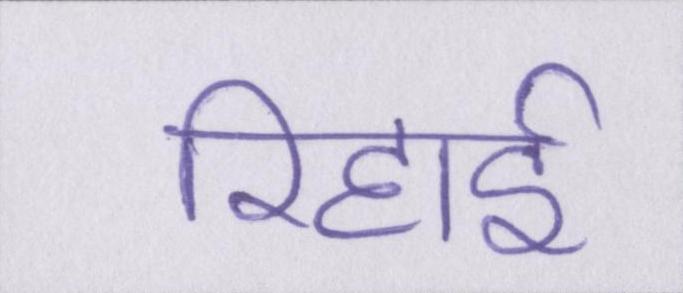 रिहाई